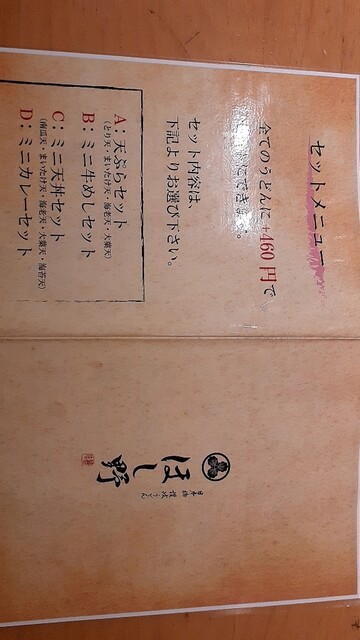 セットメニュー
全てのうどんに+460円で
できます。
セット内容は
下記よりお選び下さい。
A：天ぷらセット
（とり天・まいたけ天・海老天・大葉天）
B：ミニ牛めしセット
C：ミニ天丼セット
（南瓜天・まいたけ天・海老天・大葉天・海苔天）
D：ミニカレーセット
ほし野